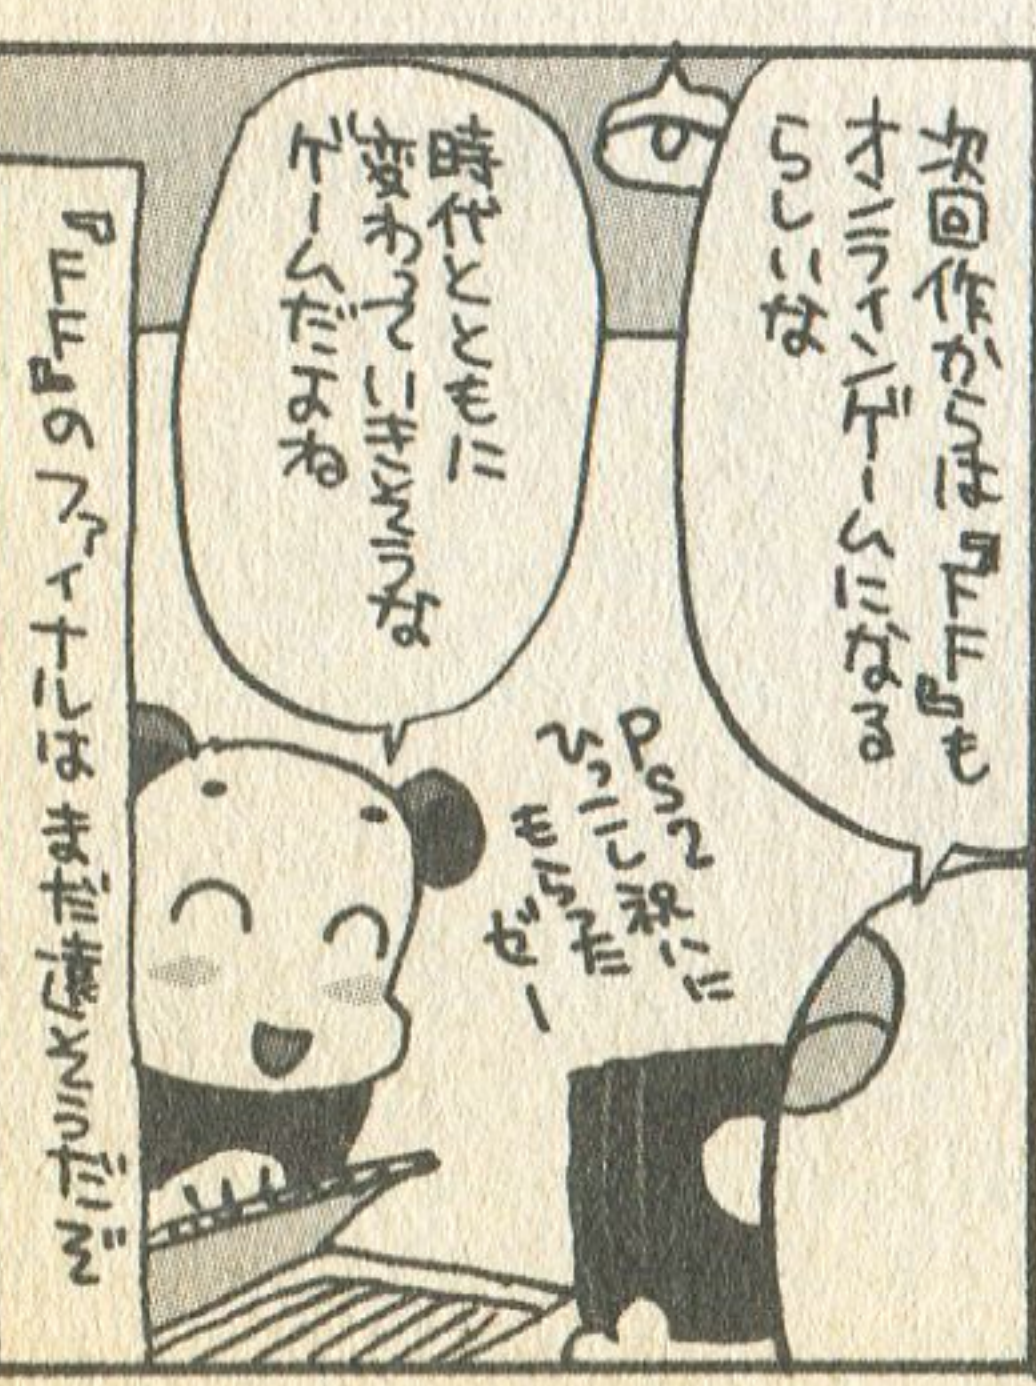 次回作からは『FF』も
オンラインゲームになる
らしいな
時代とともに
変わっていきそうな
ゲームだよね
PS2
ひっこし祝いに
もらった
ぜー
『FF』のファイナルはまだ先そうだぞ